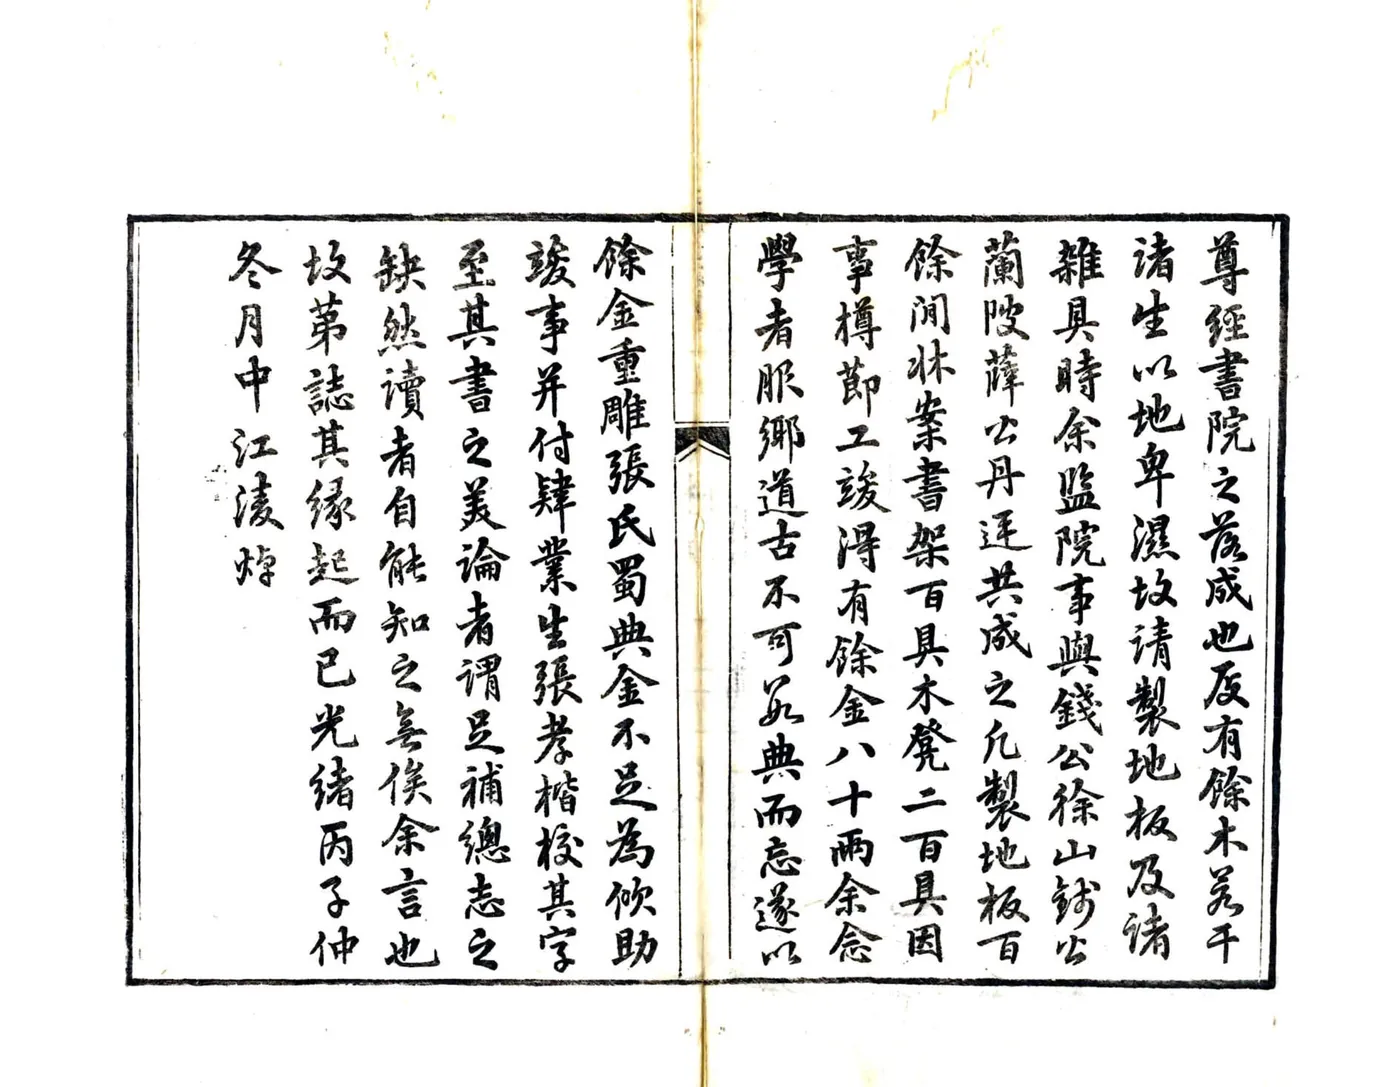 尊經書院之落成也庋有餘木若干
諸生以地卑濕故請製地板及諸
雜具時余監院事與錢公徐山錢公
蘭陂薛公丹廷共成之凡製地板百
餘間牀案書架百具木凳二百具因
事樽節工竣得有餘金八十兩余念
學者服鄉道古不可數典而忘遂以
餘金重雕張氏蜀典金不足為佽助
竣事并付肄業生張孝楷校其字
至其書之美論者謂足補總志之
缺然讀者自能知之無俟余言也
故第誌其緣起而已光緒丙子仲
冬月中江淩焯